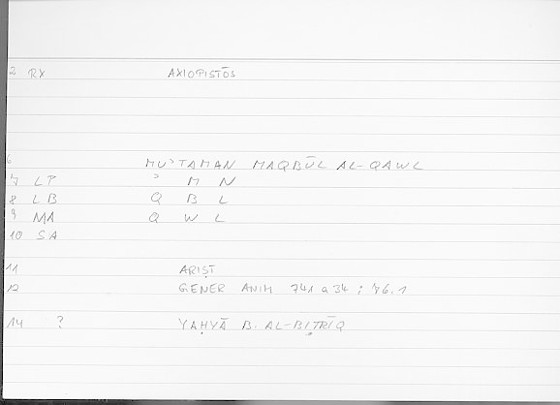 2 RX AXIOPISTŌS
6 MUʾTAMAN MAQBŪL AL-QAWL
7 LP ʾ M N
8 LB Q B L
9 MA Q W L
10 SA
11 ARIST
12 GENER ANIM 741 a 34 ; 76.1
14 ? YAḤYĀ B. AL-BIṬRĪQ